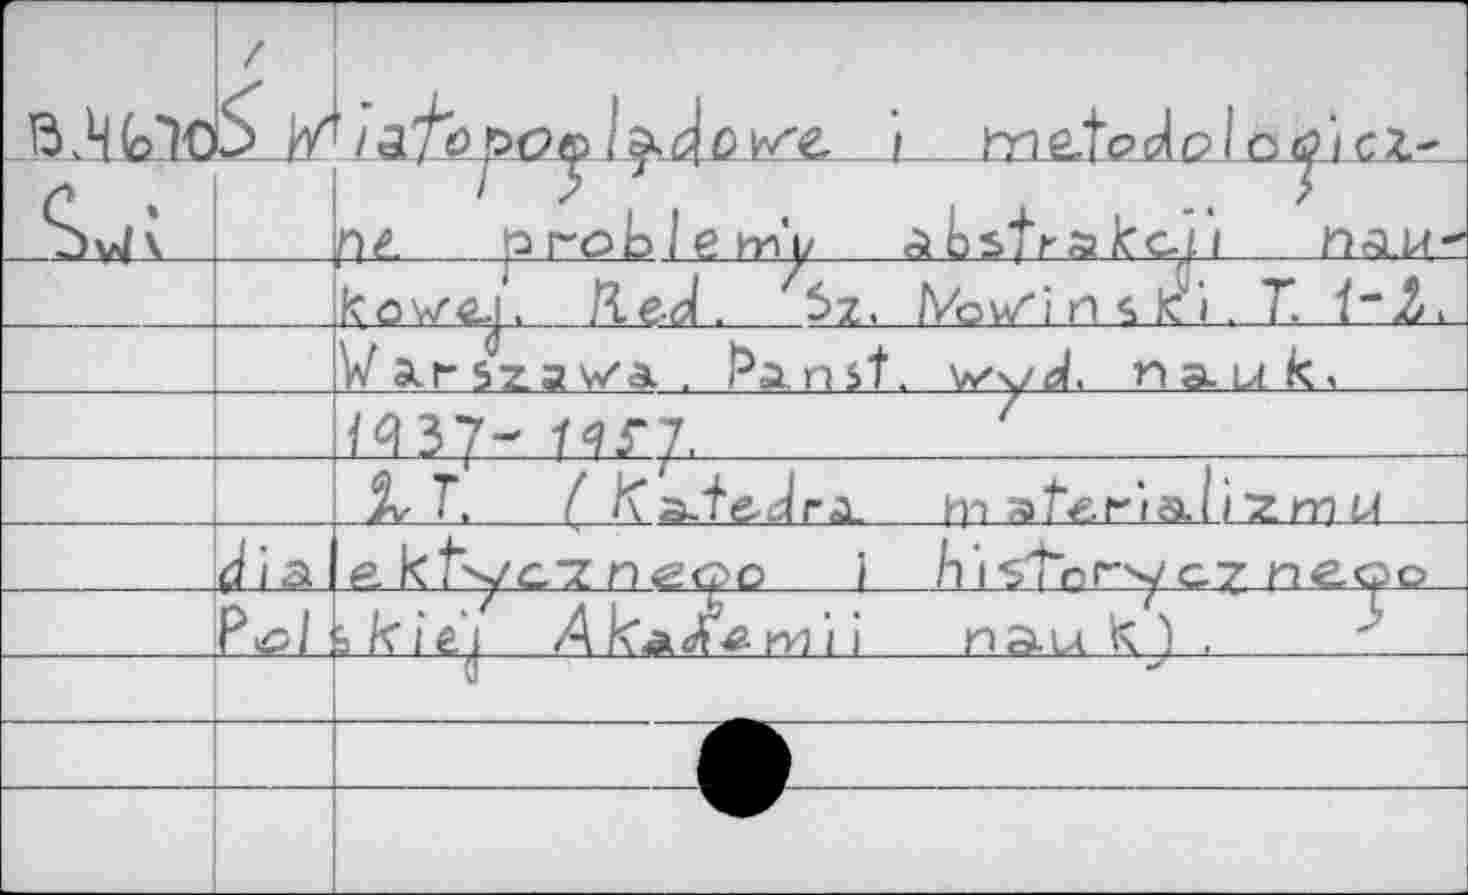 B.4670 Światopoglądowe i metodologicz-
Swi ne problemy abstrakcji nau-
kowej. Red. Sz. Nowinski. T. 1-2.
Warszawa. Panst. wyd. nauk,
1937-1957.
2 T. (Katedra materializmu
dialektycznego i historycznego
Polskiej Akademii nauk).